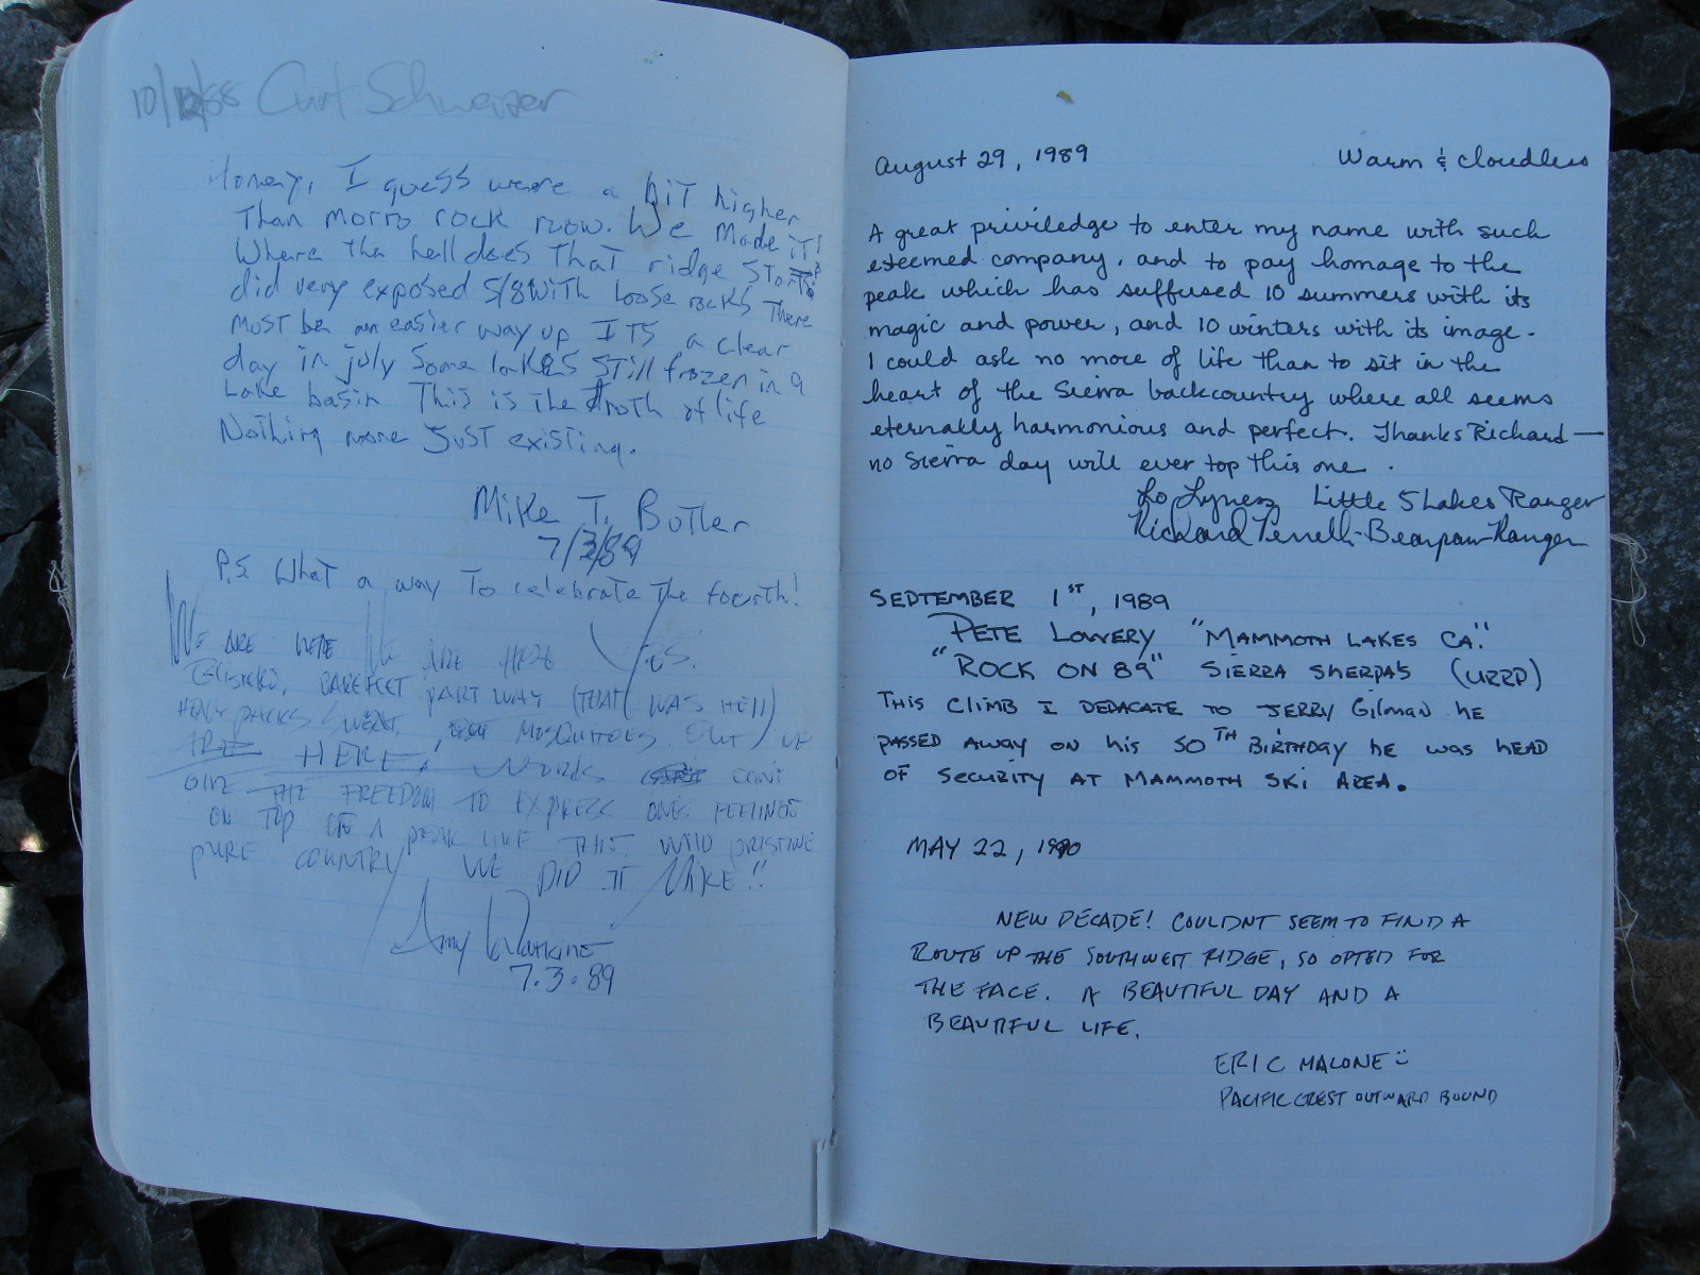 10/12/88 Curt Schweizer
Honey, I guess were a bit higher
Than morro rock now. We Made iT!
Where the hell does That ridge START?
did very exposed 5/8 with Loose rocks There
must be an easier way up ITS a clear
day in july Some lakes still frozen in a
Lake basin This is the truth of life
Nothing more Just existing.
Mike T. Butler
7/3/89
P.S. What a way To celebrate The fourth!
WE ARE HERE WE ARE HERE YES.
BLISTERS, BAREFEET PART WAY (THAT WAS HELL)
HEAVY PACKS SWEAT, MOSQUITOES BUT WE
ARE HERE! WORDS CAN'T
GIVE THE FREEDOM TO EXPRESS ONES FEELINGS
ON TOP OF A PEAK LIKE THIS. WILD PRISTINE
PURE COUNTRY WE DID IT MIKE!!
Amy Watkins
7.3.89
August 29, 1989 Warm & cloudless
A great priviledge to enter my name with such
esteemed company, and to pay homage to the
peak which has suffused 10 summers with its
magic and power, and 10 winters with its image.
I could ask no more of life than to sit in the
heart of the Sierra backcountry where all seems
eternally harmonious and perfect. Thanks Richard—
no Sierra day will ever top this one.
Lo Lyness Little 5 Lakes Ranger
Richard Perrelli-Bearpaw Ranger
SEPTEMBER 1ST, 1989
PETE LOWERY "MAMMOTH LAKES CA."
"ROCK ON 89" SIERRA SHERPA'S (URRP)
THIS CLIMB I DEDACATE TO JERRY Gilman HE
PASSED AWAY ON his 50TH BIRTHDAY HE WAS HEAD
OF SECURITY AT MAMMOTH SKI AREA.
MAY 22, 1990
NEW DECADE! COULDNT SEEM TO FIND A
ROUTE UP THE SOUTHWEST RIDGE, SO OPTED FOR
THE FACE. A BEAUTIFUL DAY AND A
BEAUTIFUL LIFE.
ERIC MALONE
PACIFIC CREST OUTWARD BOUND